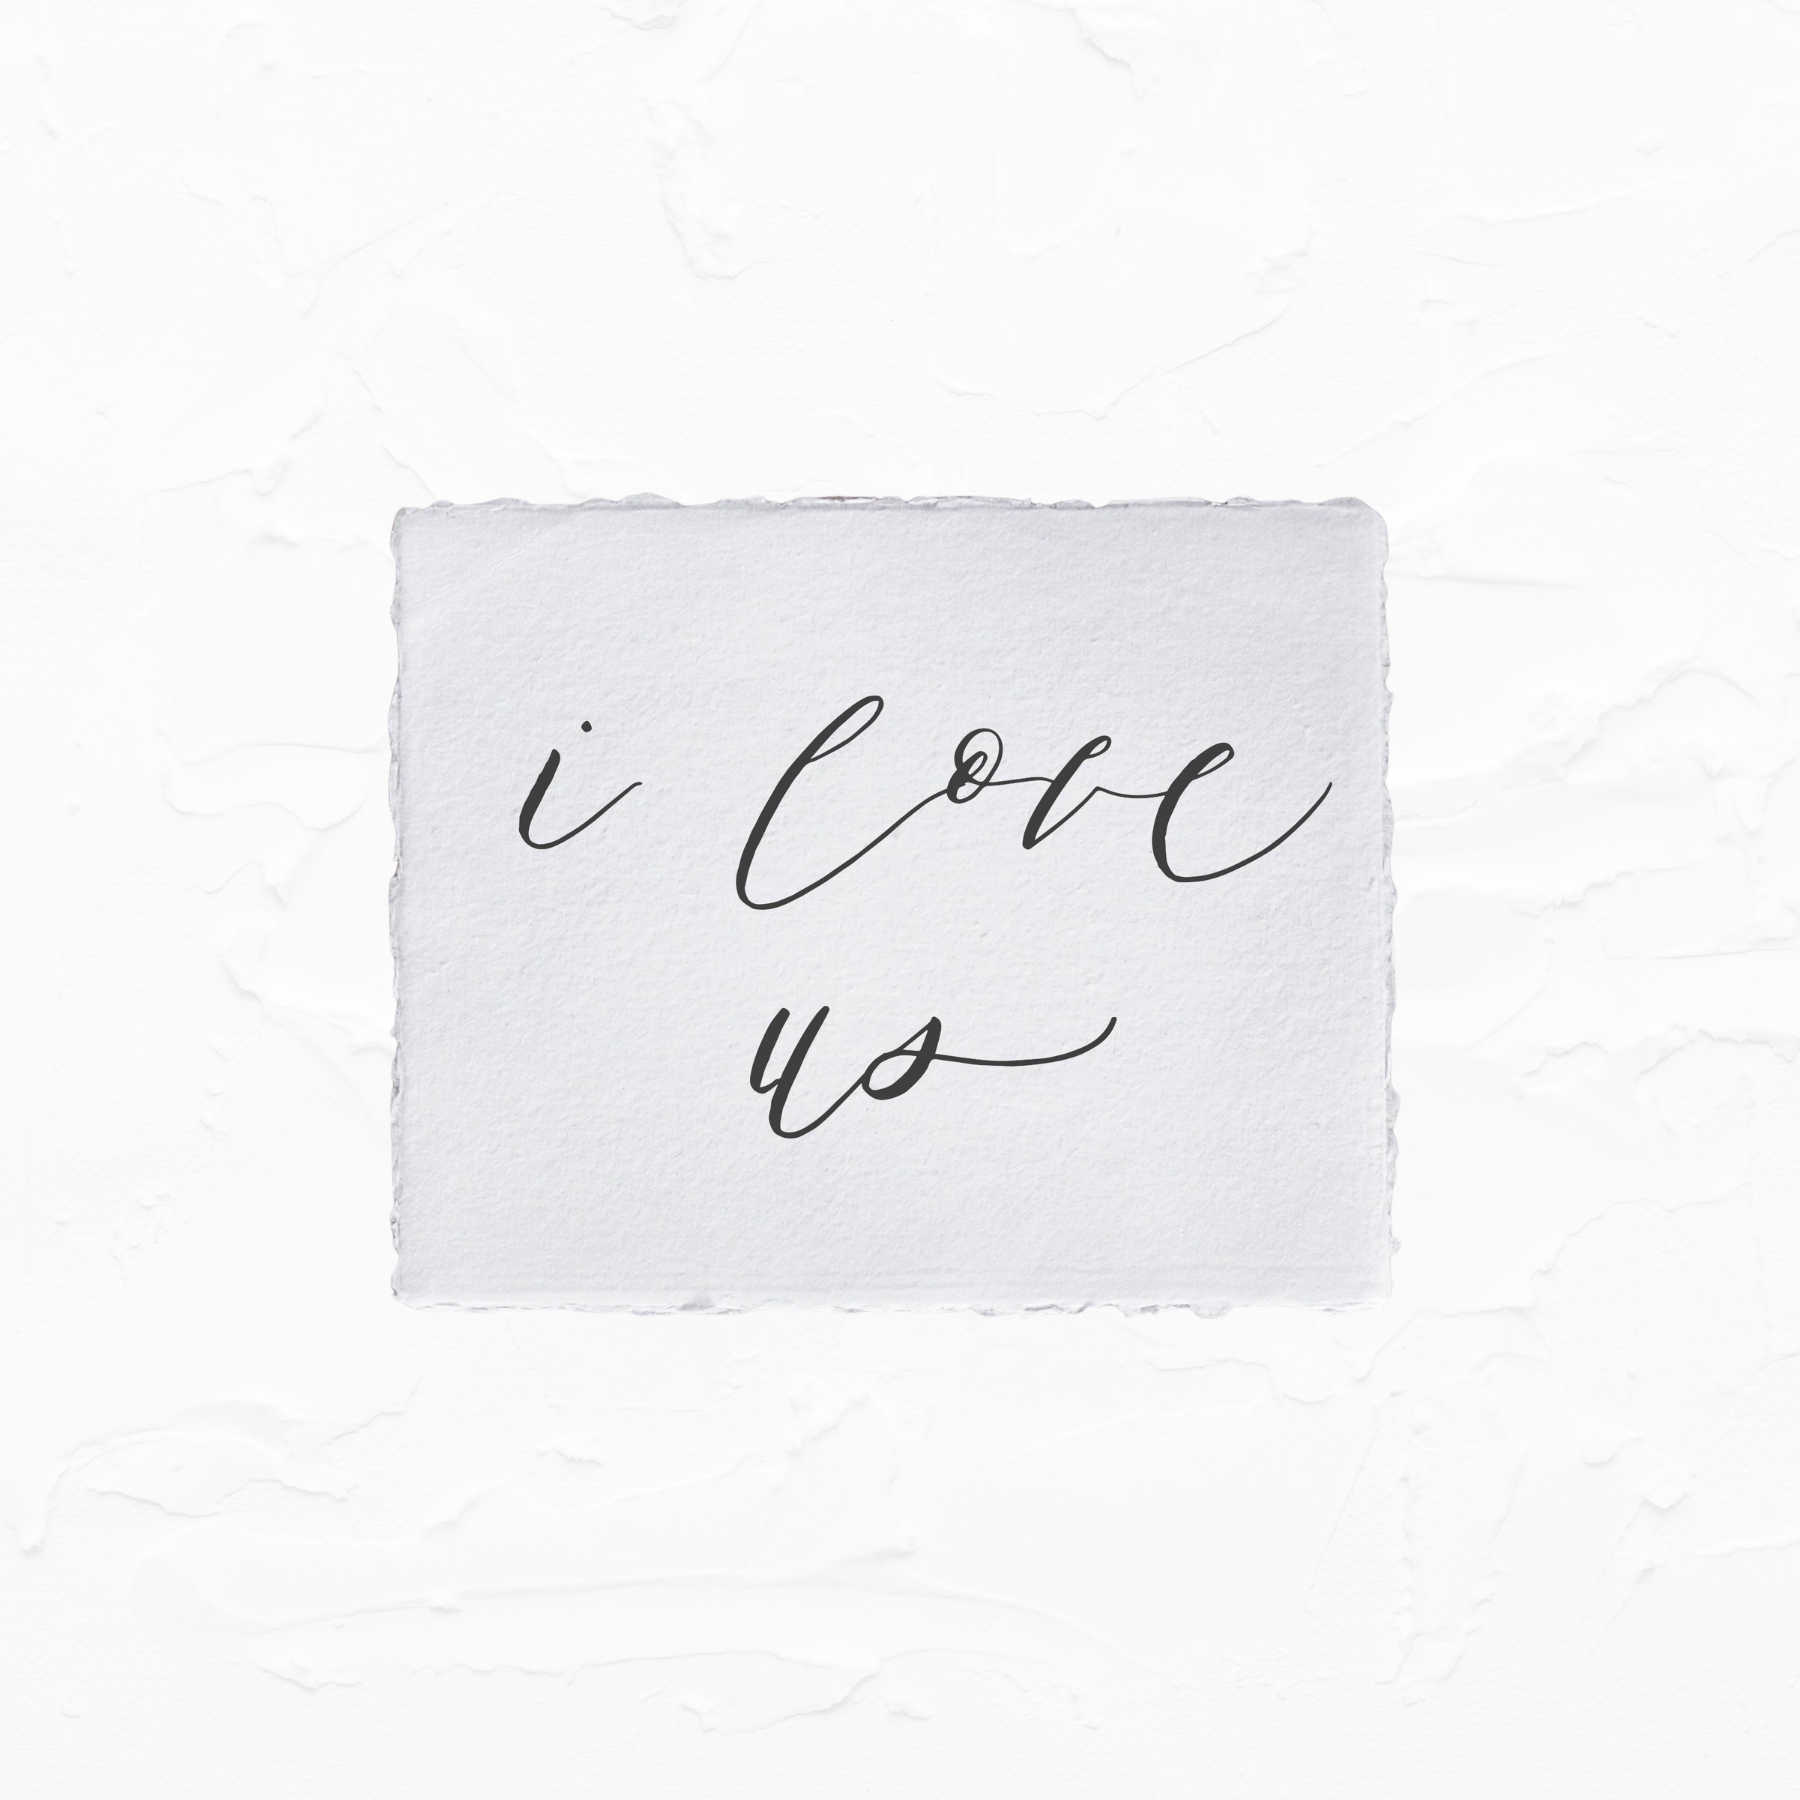 i love
us